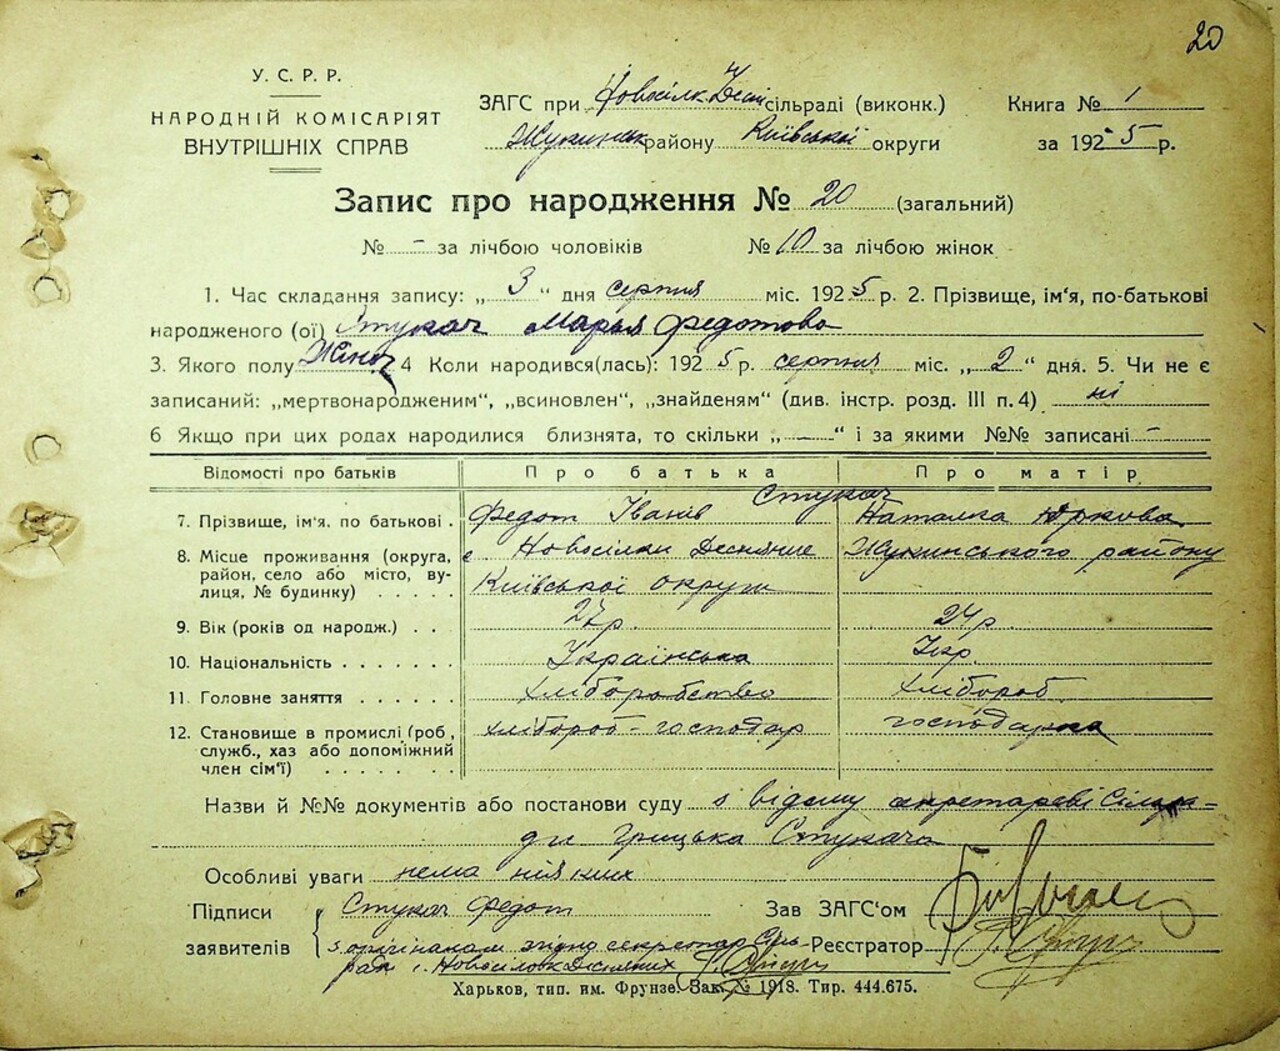 20
У. С. Р. Р.
НАРОДНІЙ КОМІСАРІЯТ
ВНУТРІШНІХ СПРАВ
ЗАГС при Новосілк. Десн сільраді (виконк.)
Жукинськ району Київської округи
Книга № 1
за 1925 р.
Запис про народження № 20 (загальний)
№ - за лічбою чоловіків № 10 за лічбою жінок
1. Час складання запису: „ 3 “ дня серпня міс. 1925 р. 2. Прізвище, ім'я, по-батькові
народженого (ої) Стукач Марья Федотова
3. Якого полу Жіноч 4 Коли народився(лась): 1925 р. серпня міс. „ 2 “ дня. 5. Чи не є
записаний: „мертвонародженим“, „всиновлен“, „знайденям“ (див. інстр. розд. III п. 4) ні
6 Якщо при цих родах народилися близнята, то скільки „ — “ і за якими №№ записані -
Відомості про батьків Про батька Про матір
Стукач
7. Прізвище, ім'я. по батькові . Федот Іванів Наталка Юркова
8. Місце проживання (округа, с. Новосілки Деснянские Жукинського району
район, село або місто, ву-
лиця, № будинку) . . . . . Київської округи
9. Вік (років од народж.) . . 27 р. 24 р.
10. Національність . . . . . . . Українська Укр.
11. Головне заняття . . . . . . хліборобство хлібороб
12. Становище в промислі (роб., хлібороб-господар господарка
служб., хаз або допоміжний
член сім'ї) . . . . . . . .
Назви й №№ документів або постанови суду з відому секретареві Сільра-
ди Грицька Стукача
Особливі уваги нема ніяких
Підписи Стукач Федот Зав ЗАГС'ом
заявителів з орігіналом згідно секретар Сіль- Реєстратор
ради с. Новосілок Десняних
Харьков, тип. им. Фрунзе. Зак. № 1918. Тир. 444.675.